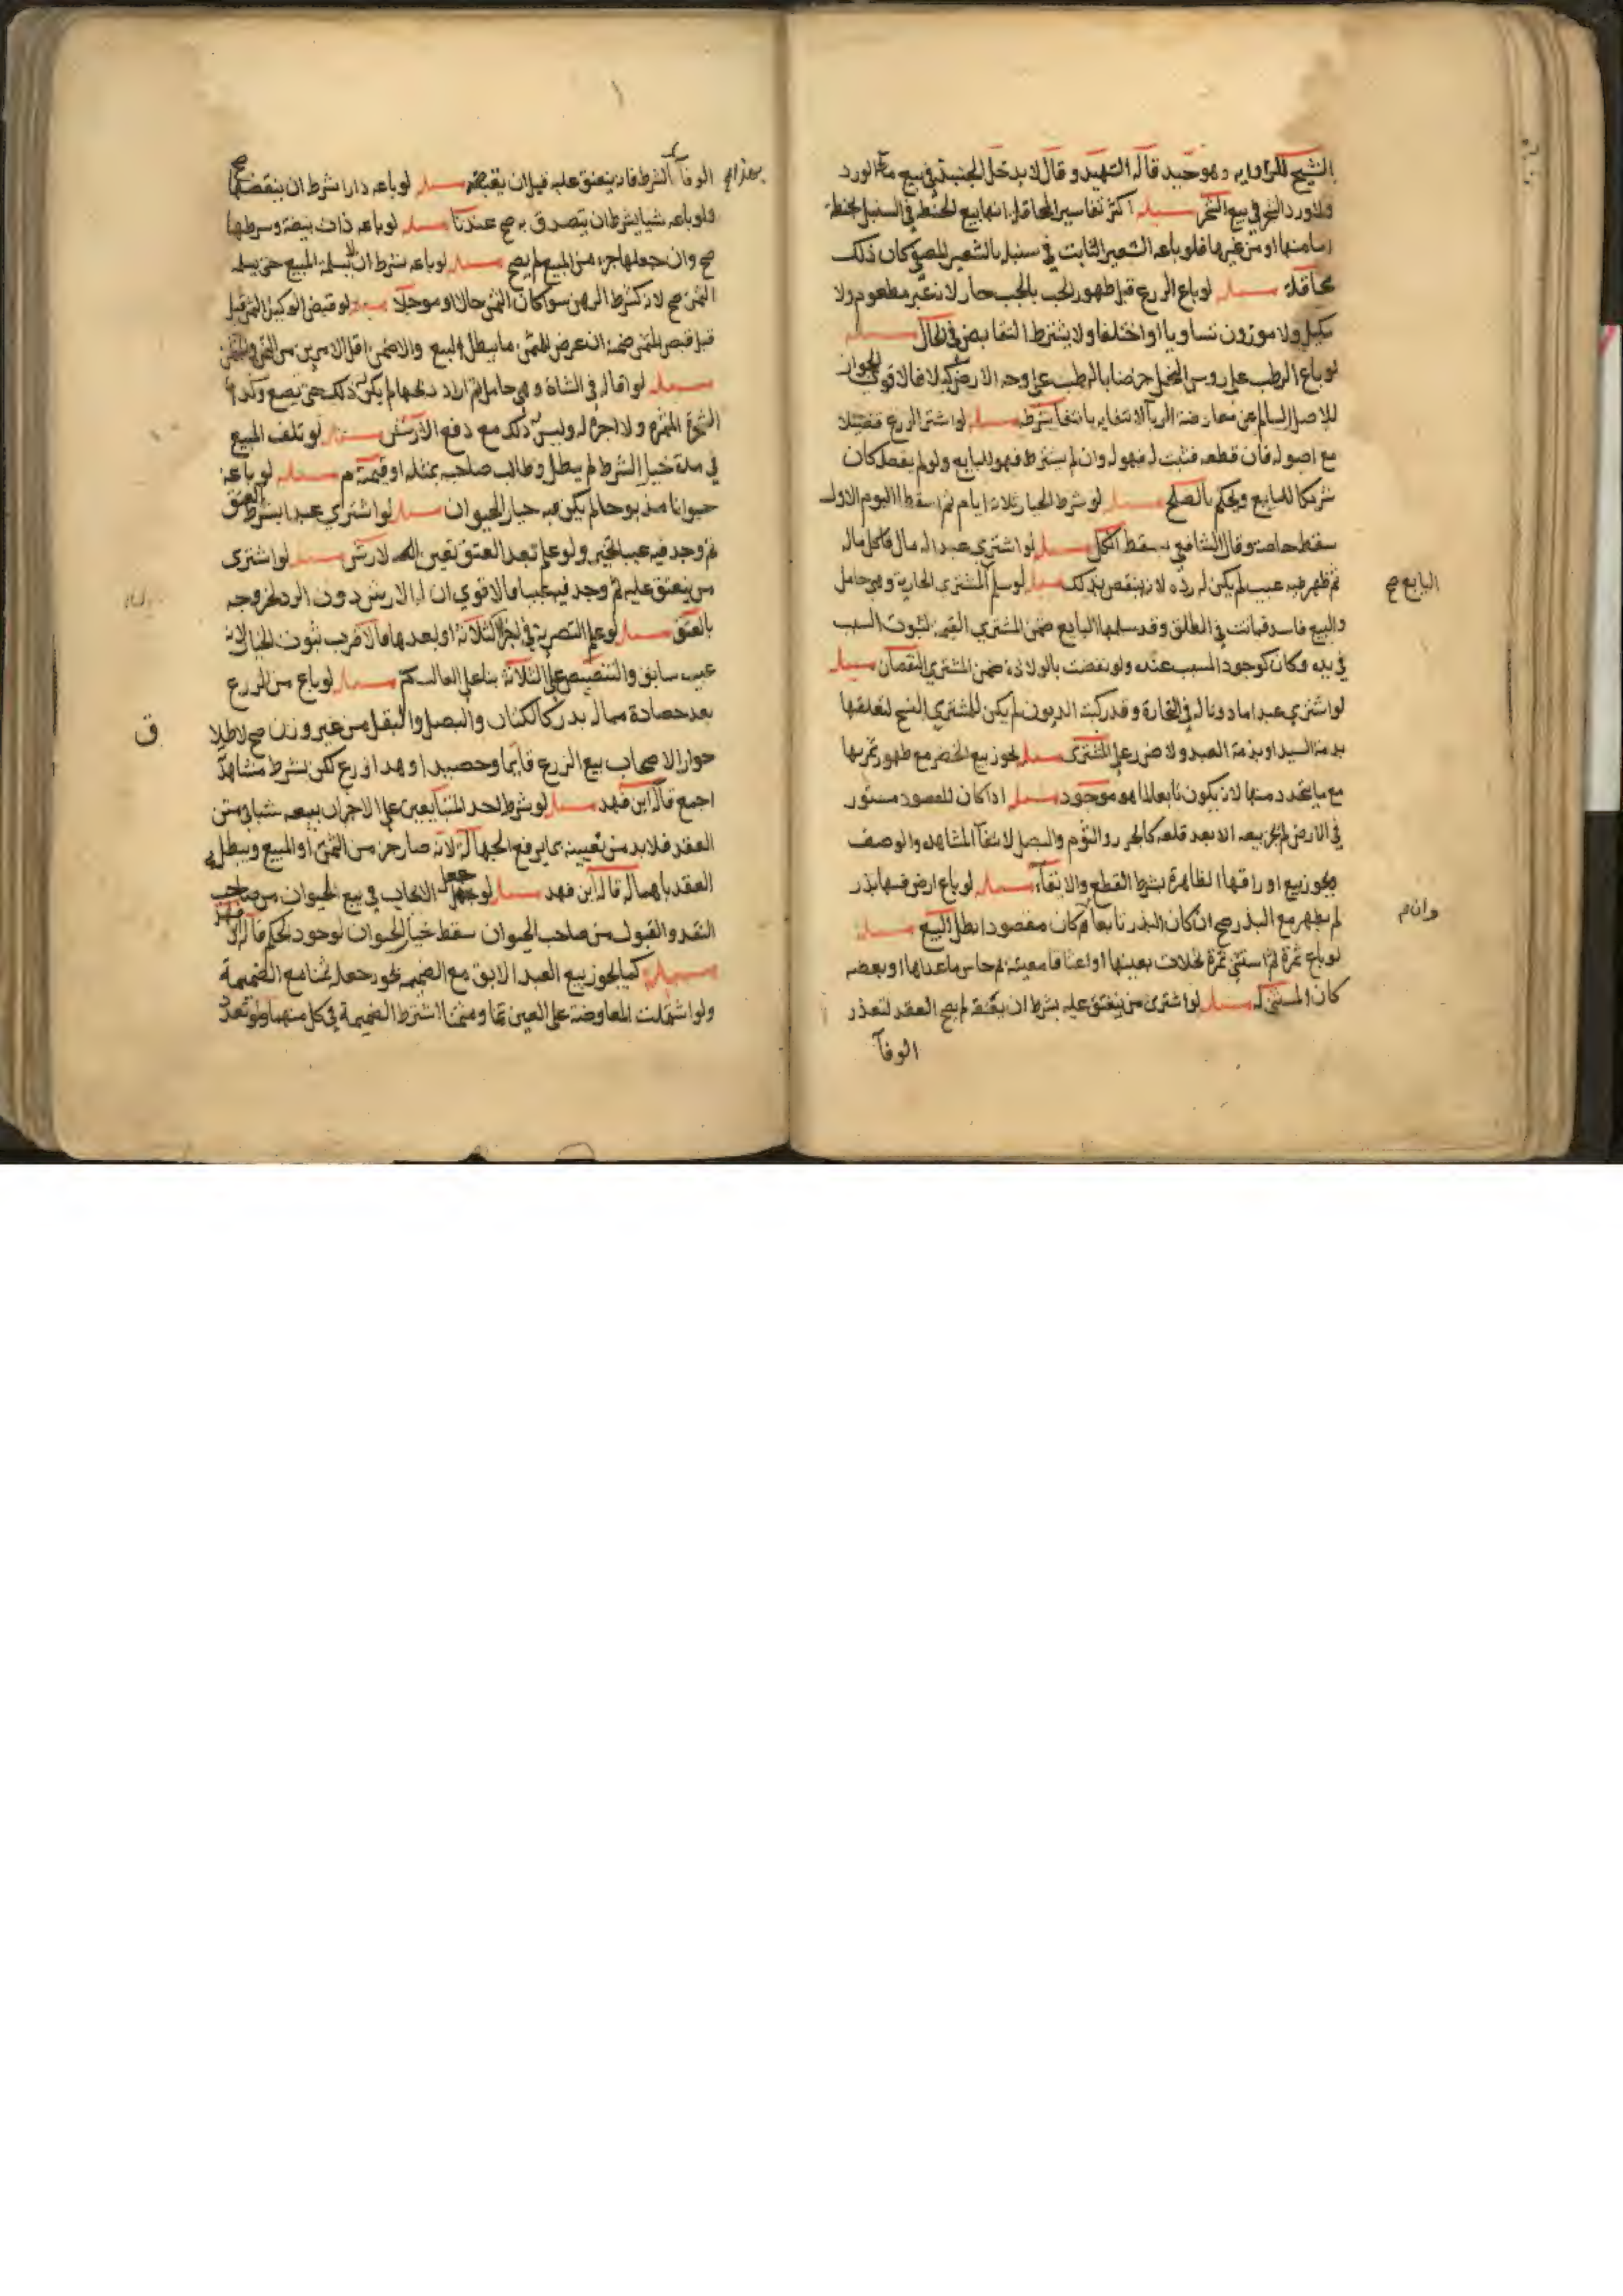 الشيخ للراوايه وهو جيد قاله الشهيد وقال لا يدخل الجنبذ في بيع ماء الورد
ولا ورد الشجر في بيع الشجر مسئله اكثر تفاسير المحاقله انها بيع الحنطه في السنبل بحنطة
اما منها او من غيرها فلو باعه الشعير الثابت في سنبله بالشعير المصفى كان ذلك
محاقلة مسئله لو باع الزرع قبل ظهور الحب بالحب جاز لانه غير مطعوم ولا
مكيل ولا موزون تساويا او اختلفا ولا يشترط التقابض في الحال مسئله
لو باع الرطب على روس النخل خرصا بالرطب على وجه الارض كيلا فالاقوى الجواز
للاصل السالم عن معارضة الربا لانتفايه بانتفا شرطه مسئله لو اشترى الزرع فصيلا
مع اصوله فان قطعه فنبت له فهو له وان لم يشترط فهو للبايع ولو لم يفصل كان
شريكا للبايع ويحكم بالصلح مسئله لو شرط الخيار ثلاثة ايام ثم اسقط اليوم الاول
سقط خاصة وقال الشافعي يسقط الكل مسئله لو اشترى عبدا له مال فاكل ماله
ثم ظهر فيه عيب لم يكن له رده لانه ينقص بذلك مسئله لو سلم المشتري الجارية وهي حامل
البايع صح
والبيع فاسد فماتت في الطلق وقد سلمها البايع ضمن المشتري القيمة لثبوت السبب
في يده وكان كوجود المسبب عنده ولو نقصت بالولادة ضمن المشتري النقصان مسئله
لو اشترى عبدا ماذونا له في التجارة وقد ركبته الديون لم يكن للمشتري الفسخ لتعلقها
بذمة السيد او بذمة العبد ولا ضرر على المشترى مسئله يجوز بيع الخضر مع ظهور ثمرتها
مع ما يتجدد منها لانه يكون تابعا لما هو موجود مسئله اذا كان المقصود مستور
في الارض لم يجز بيعه الا بعد قلعه كالجزر والثوم والبصل لانتفا المشاهده والوصف
ويجوز بيع اوراقها الظاهرة بشرط القطع والابقاء مسئله لو باع ارض فيها بذر
لم يظهر مع البذر صح ان كان البذر تابعا وان كان مقصودا بطل البيع مسئله
وان م
لو باع ثمرة ثم استثنى ثمرة نخلات بعينها او اعذاقا معينة ثم خاس ما عداها او بعضه
كان المستثنى له مسئله لو اشترى من ينعتق عليه بشرط ان يعتقه لم يصح العقد لتعذر
الوفآ
الوفآ بالشرط فانه ينعتق عليه قبل ان يقبضه مسئله لو باعه دارا شرط ان ينقضها صح
ولو باعه شيا بشرط ان يتصدق به صح عندنا مسئله لو باعه ذات بيضة وشرطها
صح وان جعلها جزء من المبيع لم يصح مسئله لو باعه بشرط ان لا يسلمه المبيع حتى يسلمه
الثمن صح لانه كشرط الرهن سوا كان الثمن حالا او موجلا مسئله لو قبض الوكيل الثمن قبل
مسئله لو اقاله في الشاة وهي حامل ثم اراد ذبحها لم يكن له ذلك حتى تضع وكذا في
الشجرة المثمرة ولا اجرة له وليس له ذلك مع دفع الارش مسئله لو تلف المبيع
في مدة خيار الشرط لم يبطل وطالب صاحبه بمثله او قيمته م مسئله لو باعه
حيوانا مذبوحا لم يكن فيه خيار الحيوان مسئله لو اشترى عبدا بشرط العتق
ثم وجد فيه عيبا تخير ولو علم بعد العتق تعين له الارش مسئله لو اشترى
من ينعتق عليه ثم وجد فيه عيبا فالاقوى ان له الارش دون الرد لخروجه
بالعتق مسئله لو علم التصرية في اخر الثلاثة او بعدها فالاقرب ثبوت الخيار لانه
عيب سابق والتنصيص على الثلاثة بنا على الغالب كم مسئله لو باع من الزرع
بعد حصاده ماله بذر كالكتان والبصل والبقل من غير وزن صح لاطلا
ق
جواز الاصحاب بيع الزرع قايما وحصيدا وهذا زرع لكن بشرط مشاهدة
اجمع قاله ابن فهد مسئله لو شرط احد المتبايعين على الاخر ان يبيعه شيا في متن
العقد فلا بد من تعيينه بما يرفع الجهالة لانه صار جزء من الثمن او المبيع ويبطل
العقد باهماله قاله ابن فهد مسئله لو جعل الايجاب في بيع الحيوان من صاحب
النقد والقبول من صاحب الحيوان سقط خيار الحيوان لوجود الحكم قاله ابن فهد
مسئله كما يجوز بيع العبد الابق مع الضميمه يجوز جعله ثمنا مع الضميمة
ولو اشتملت المعاوضة على العين ثمنا ومثمنا اشترط الضميمة في كل منهما ولو تعدد